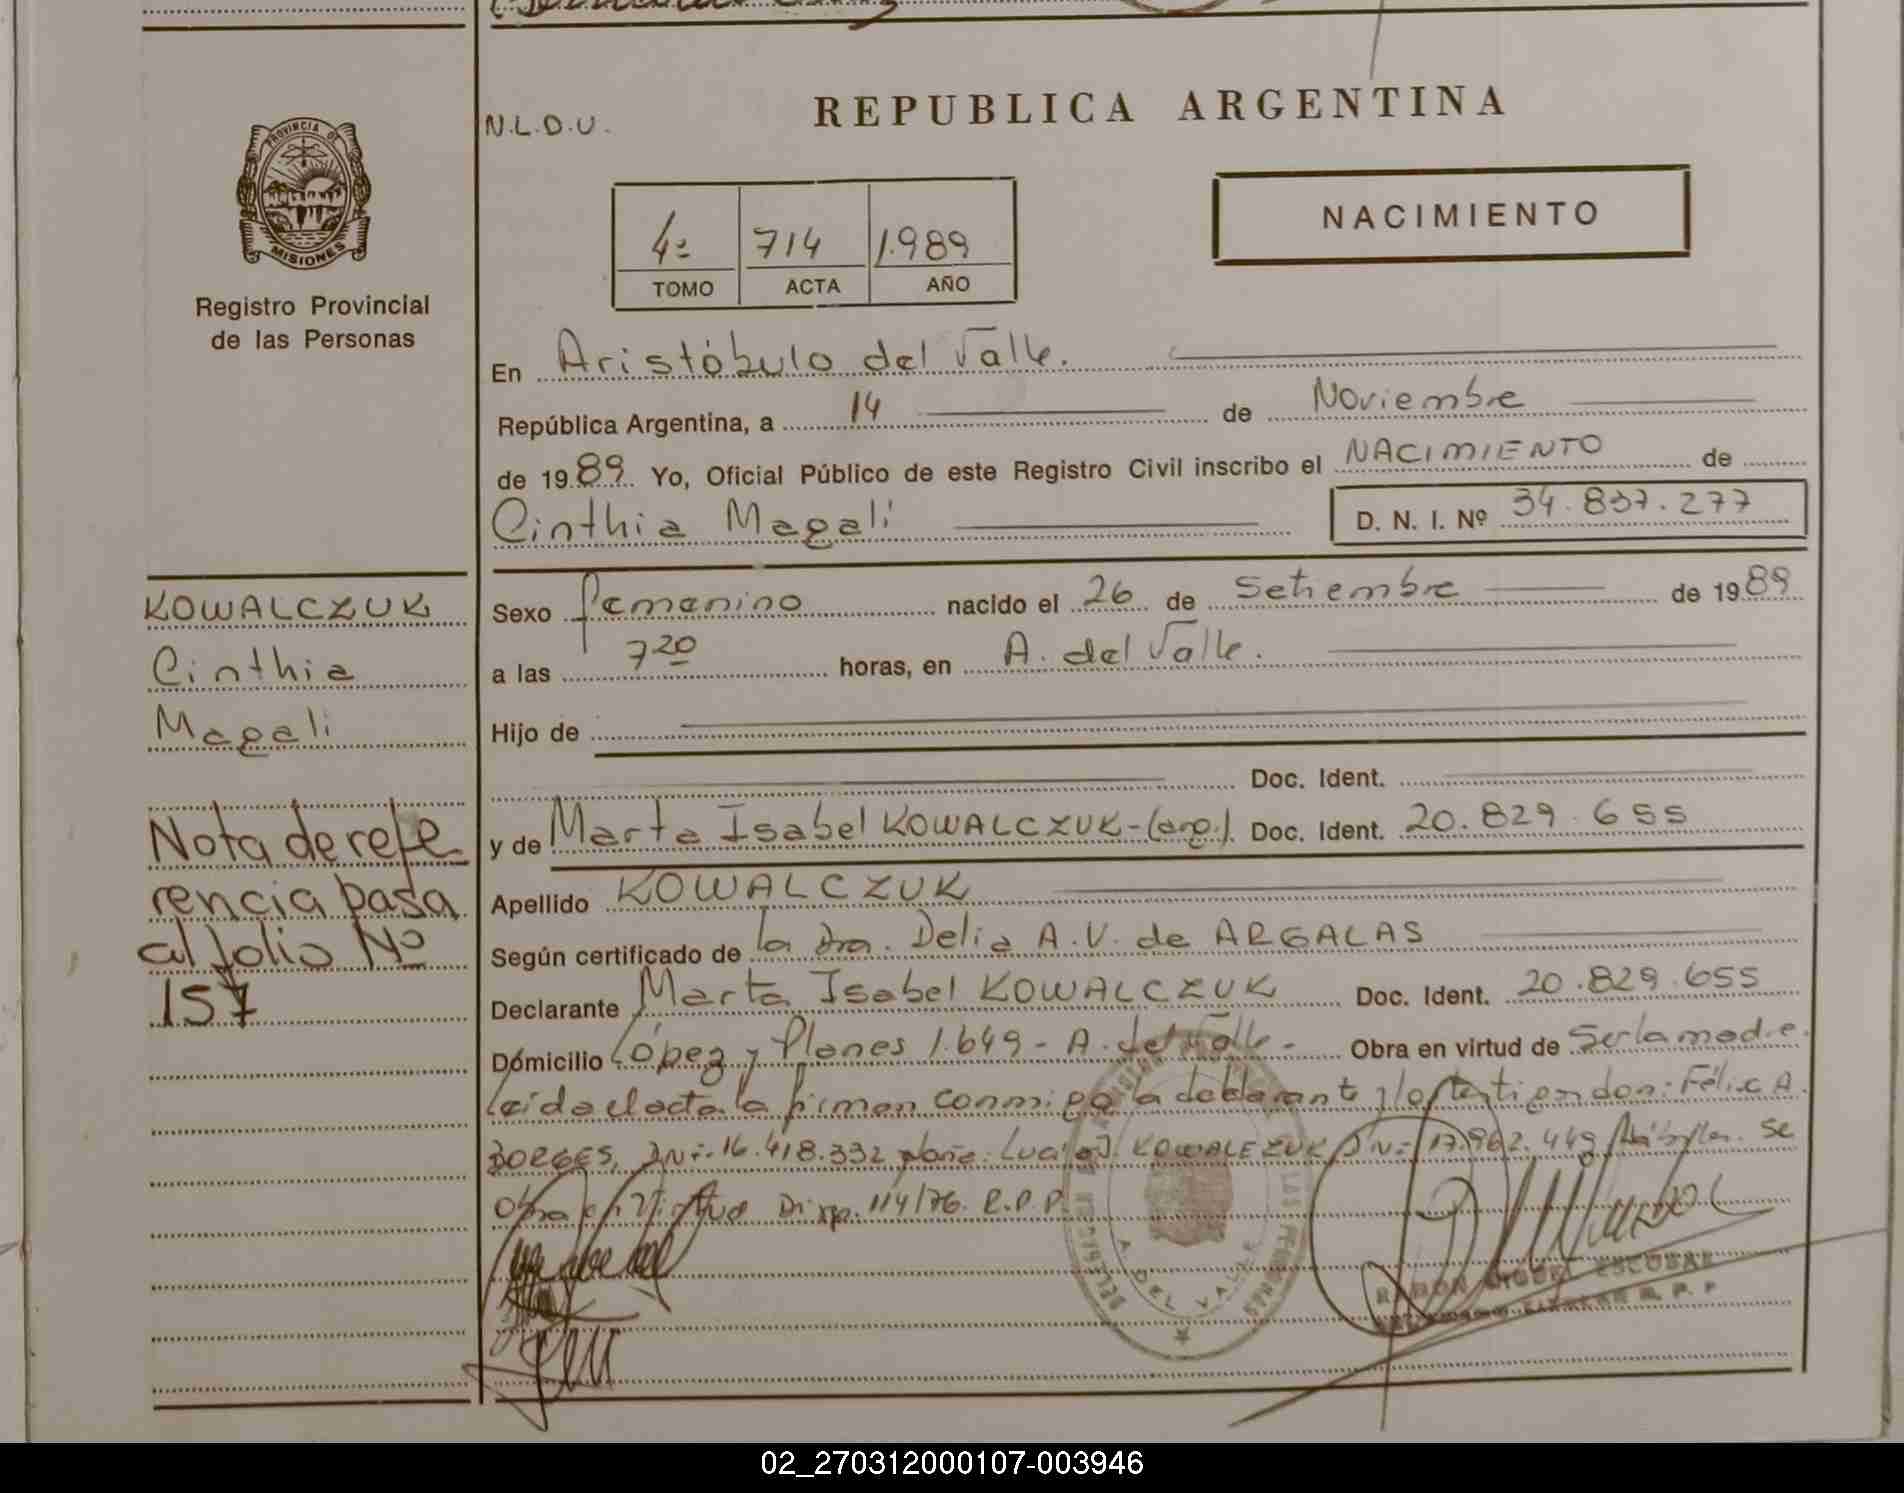 PROVINCIA DE
MISIONES
Registro Provincial
de las Personas
N.L.D.U.
REPUBLICA ARGENTINA
NACIMIENTO
4º 714 1.989
TOMO ACTA AÑO
En Aristóbulo del Valle.
República Argentina, a 14 de Noviembre
de 1989. Yo, Oficial Público de este Registro Civil inscribo el NACIMIENTO de
Cinthia Magalí D. N. I. Nº 34.837.277
KOWALCZUK
Cinthia
Magali
Nota de refe
rencia pasa
al folio Nº
157
Sexo femenino nacido el 26 de Setiembre de 1989
a las 7 20 horas, en A. del Valle.
Hijo de
Doc. Ident.
y de Marta Isabel KOWALCZUK-(arg.). Doc. Ident. 20.829.655
Apellido KOWALCZUK
Según certificado de la Dra. Delia A.V. de ARGALAS
Declarante Marta Isabel KOWALCZUK Doc. Ident. 20.829.655
Domicilio López y Planes 1.649 - A. del Valle - Obra en virtud de Ser la madre.
Leida el acta la firman conmigo la declarante y los testigos don: Félix A.
BORGES, DNI-16.418.332 y doña: KOWALEZUK DNI= 17.962.449 Se
Obra en Virtud Disp. 114/76. R.P.P.
A. DEL VALLE
RAMON MIGUEL ESCOBAR
R. P. P
02_270312000107-003946